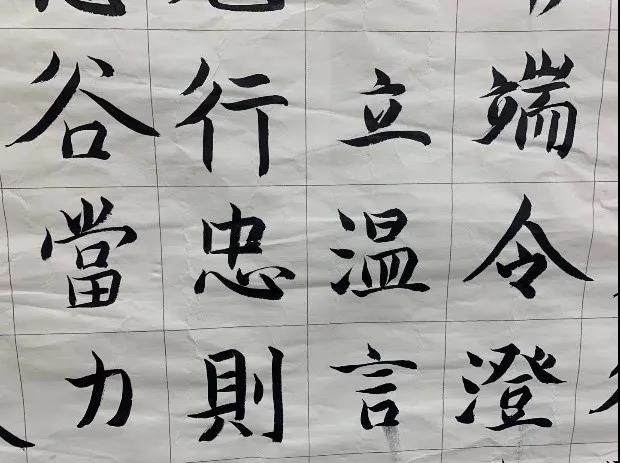 端令澄
立温言
行忠則
谷當力